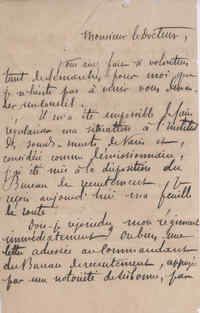 Monsieur le Docteur,
Vous avez fait si volontiers
tant de démarches pour moi que
je n'hésite pas à venir vous deman
der un conseil.
Il m'a été impossible de faire
régulariser ma situation à l'institut
des sourds-muets de Paris et,
considéré comme démissionnaire,
j'ai été mis à la disposition du
Bureau de recrutement. Je
reçois aujourd'hui ma feuille
de route.
Dois-je rejoindre mon régiment
immédiatement ? Ou bien, une
lettre adressée au Commandant
du Bureau de recrutement, appuyé
par une notoriété de Sisbonne, par